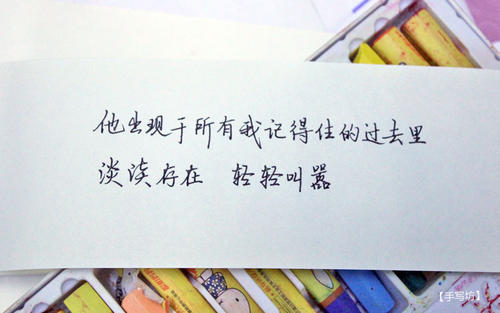 他出现于所有我记得住的过去里
淡淡存在 轻轻叫嚣
【手写坊】